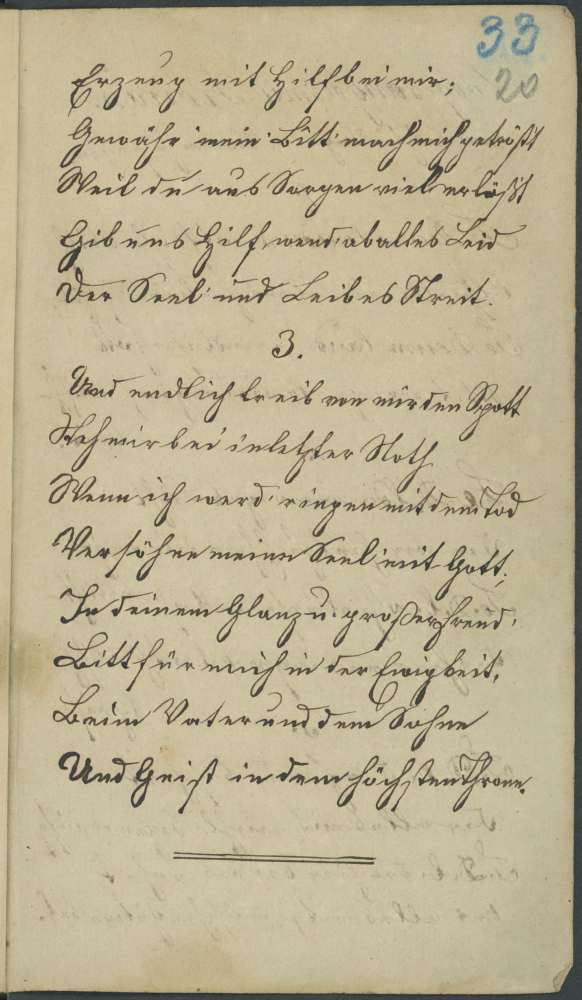 33
20
Erzeug mit Hilf bei mir;
Gewähr mein Bitt mach mich getröst
Weil du aus Sorgen viel erlößt
Gib uns Hilf, wend' ab alles Leid
Der Seel' und Leibes Streit.
3.
Und endlich treib von mir den Spott
Steh mir bei in letzter Noth
Wenn ich werd' ringen mit dem Tod
Versöhne meine Seel' mit Gott;
In deinem Glanz u. großer Freud'
Bitt für mich in der Ewigkeit,
Beim Vater und dem Sohne
Und Geist in dem höchsten Throne.